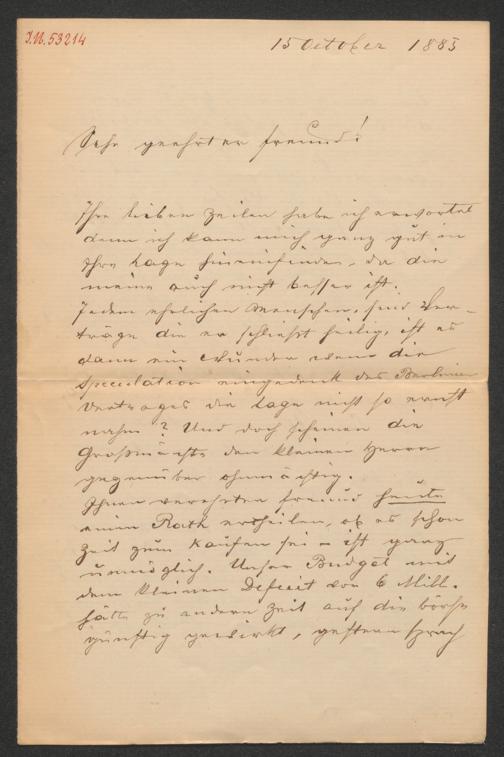 I.N. 53214
15 October 1885
Sehr geehrter Freund!
Ihre lieben Zeilen habe ich erwartet
denn ich kann mich ganz gut in
Ihre Lage hineinfinden, da die
meine auch nicht besser ist.
Jedem ehrlichen Menschen, sind Ver-
träge die er schließt heilig, ist es
dann ein Wunder wenn die
Speculation eingedenk des Berliner
Vertrages die Lage nicht so ernst
nahm? Und doch scheinen die
Großmächte den kleinen Herrn
gegenüber ohnmächtig.
Ihnen verehrter Freund heute
einen Rath ertheilen, ob es schon
Zeit zum Kaufen sei – ist ganz
unmöglich. Unser Budget mit
dem kleinen Deficit von 6 Mill.
hätte zu anderer Zeit auf die Börse
günstig gewirkt, gestern sprach